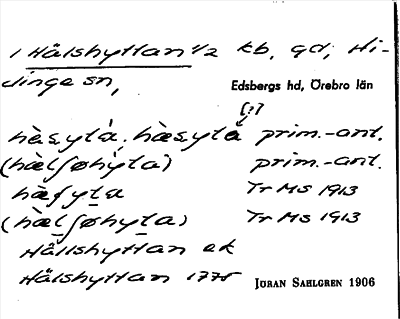 1 Hålshyttan 1/2 kb, gd, Hi-
dinge sn,
Edsbergs hd, Örebro län
[?]
hàsyta, hàsyta prim.-ant.
(hàlʃøhyta) prim.-ant.
hàʃyta Tr MS 1913
(hàlʃøhyta) Tr MS 1913
Hållshyttan ek
Hålshyttan 1775
JÖRAN SAHLGREN 1906